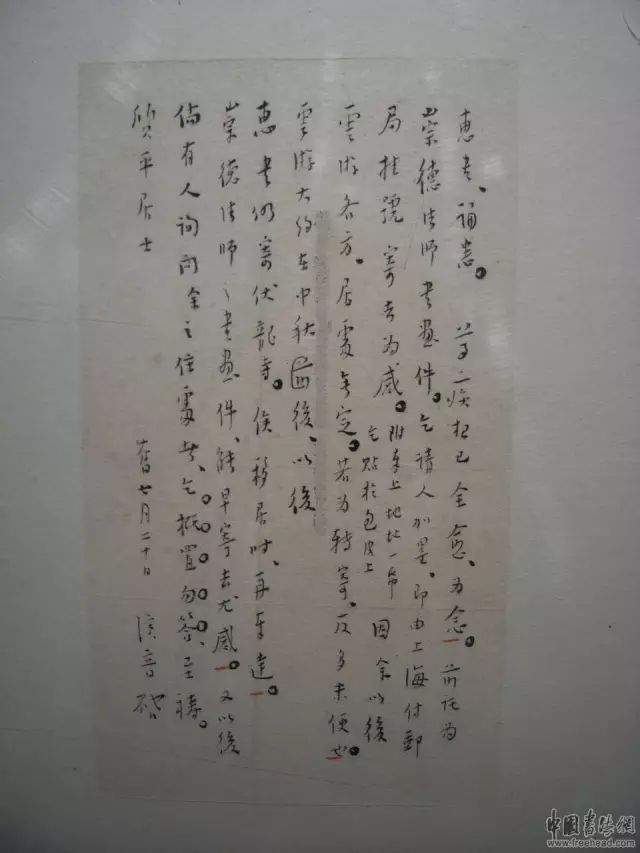 惠書、誦悉。尊疾想已全愈、為念。前託為
崇德法師書畫件。乞請人加墨、即由上海付郵
局挂號寄去為感。附奉上地址一帋
乞黏於包皮上
因余以後
雲游各方。居處無定。若為轉寄、反多未便也。
雲游大約在中秋前後、以後
惠書仍寄伏龍寺。俟移居時、再奉達。
崇德法師之書畫件、能早寄去尤感。又以後
倘有人詢問余之住處者、乞概置勿答、至禱。
質平居士
舊七月二十日 演音啓
中國書法網
www.freehead.com